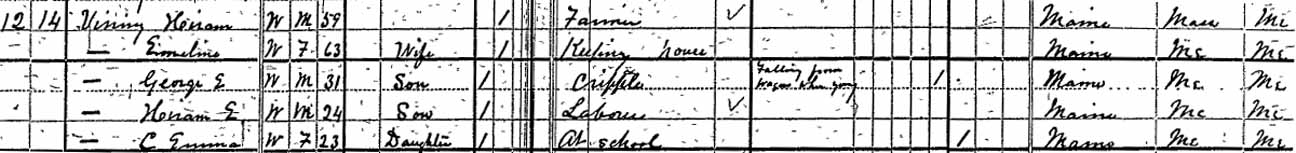 12 14 Vining Heiram W M 59 1 Farmer ✓ Maine Mass Me
— Emeline W F 63 Wife 1 Keeping house Maine Me Me
— George E W M 31 Son 1 Cripple Falling from wagon when young 1 Maine Me Me
— Heiram E. W M 24 Son 1 Laborer ✓ Maine Me Me
— C Emma W F 23 Daughter 1 At school 1 Maine Me Me